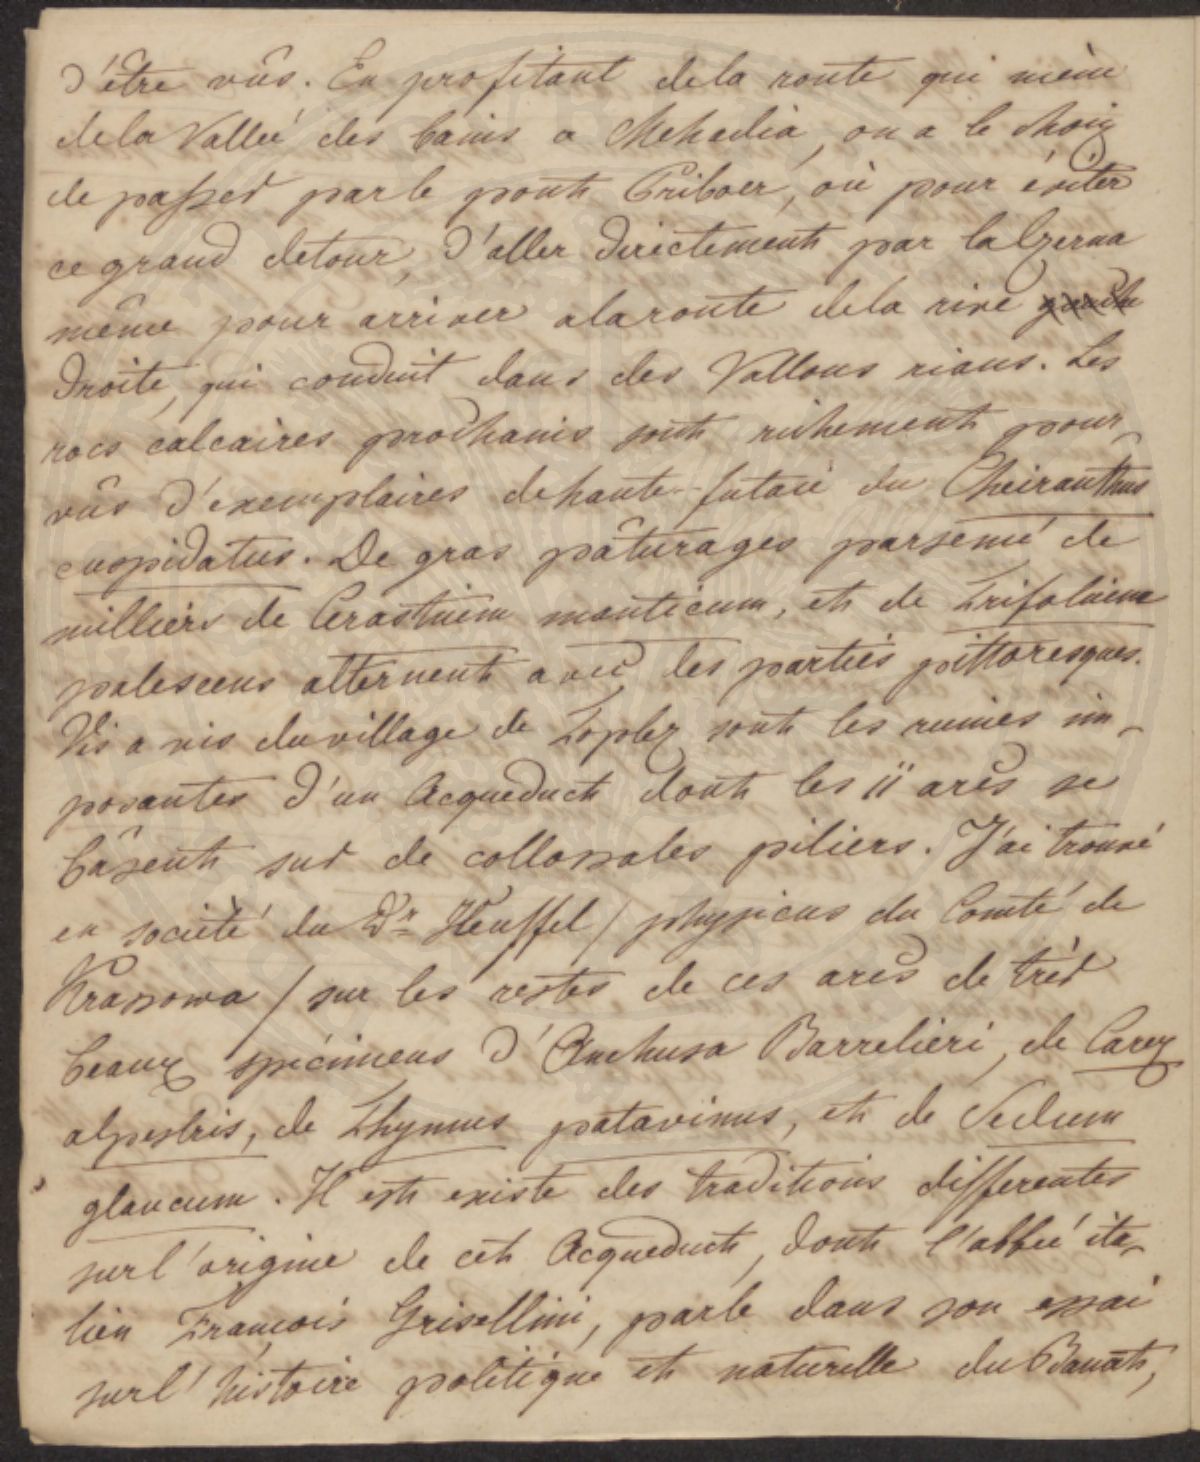 d'être vûs. En profitant dela route qui mène
dela Vallée des bains a Mehedia, on a le choix
de passer par le pont Griboer, où pour éviter
ce grand detour, d'aller directement par la Czerna
même pour arriver a la route dela rive gauche
droite, qui conduit dans des Vallons rians. Les
rocs calcaires prochains sont richement pour-
vûs d'exemplaires dehaute-futaie du Cheiranthus
cuspidatus. De gras pâturages parsemé de
milliers de Cerastium manticum, et de Trifolium
palescens alternent avec les parties pittoresques.
Vis a vis du village de Toplez sont les ruines im-
posantes d'un Acqueduct dont les 11 arcs se
bâsent sur de collossales piliers. J'ai trouvé
en société du Dr Heuffel / physicus du Comté de
Krassowa / sur les restes de ces arcs de très
beaux spécimens d'Anchusa Barrelieri, de Carex
alpestris, de Thymus patavinus, et de Sedum
glaucum. Il est existe des traditions differentes
sur l'origine de cet Acqueduct, dont l'abbé ita-
lien François Grisellini, parle dans son essai
sur l'histoire politique et naturelle du Banat,